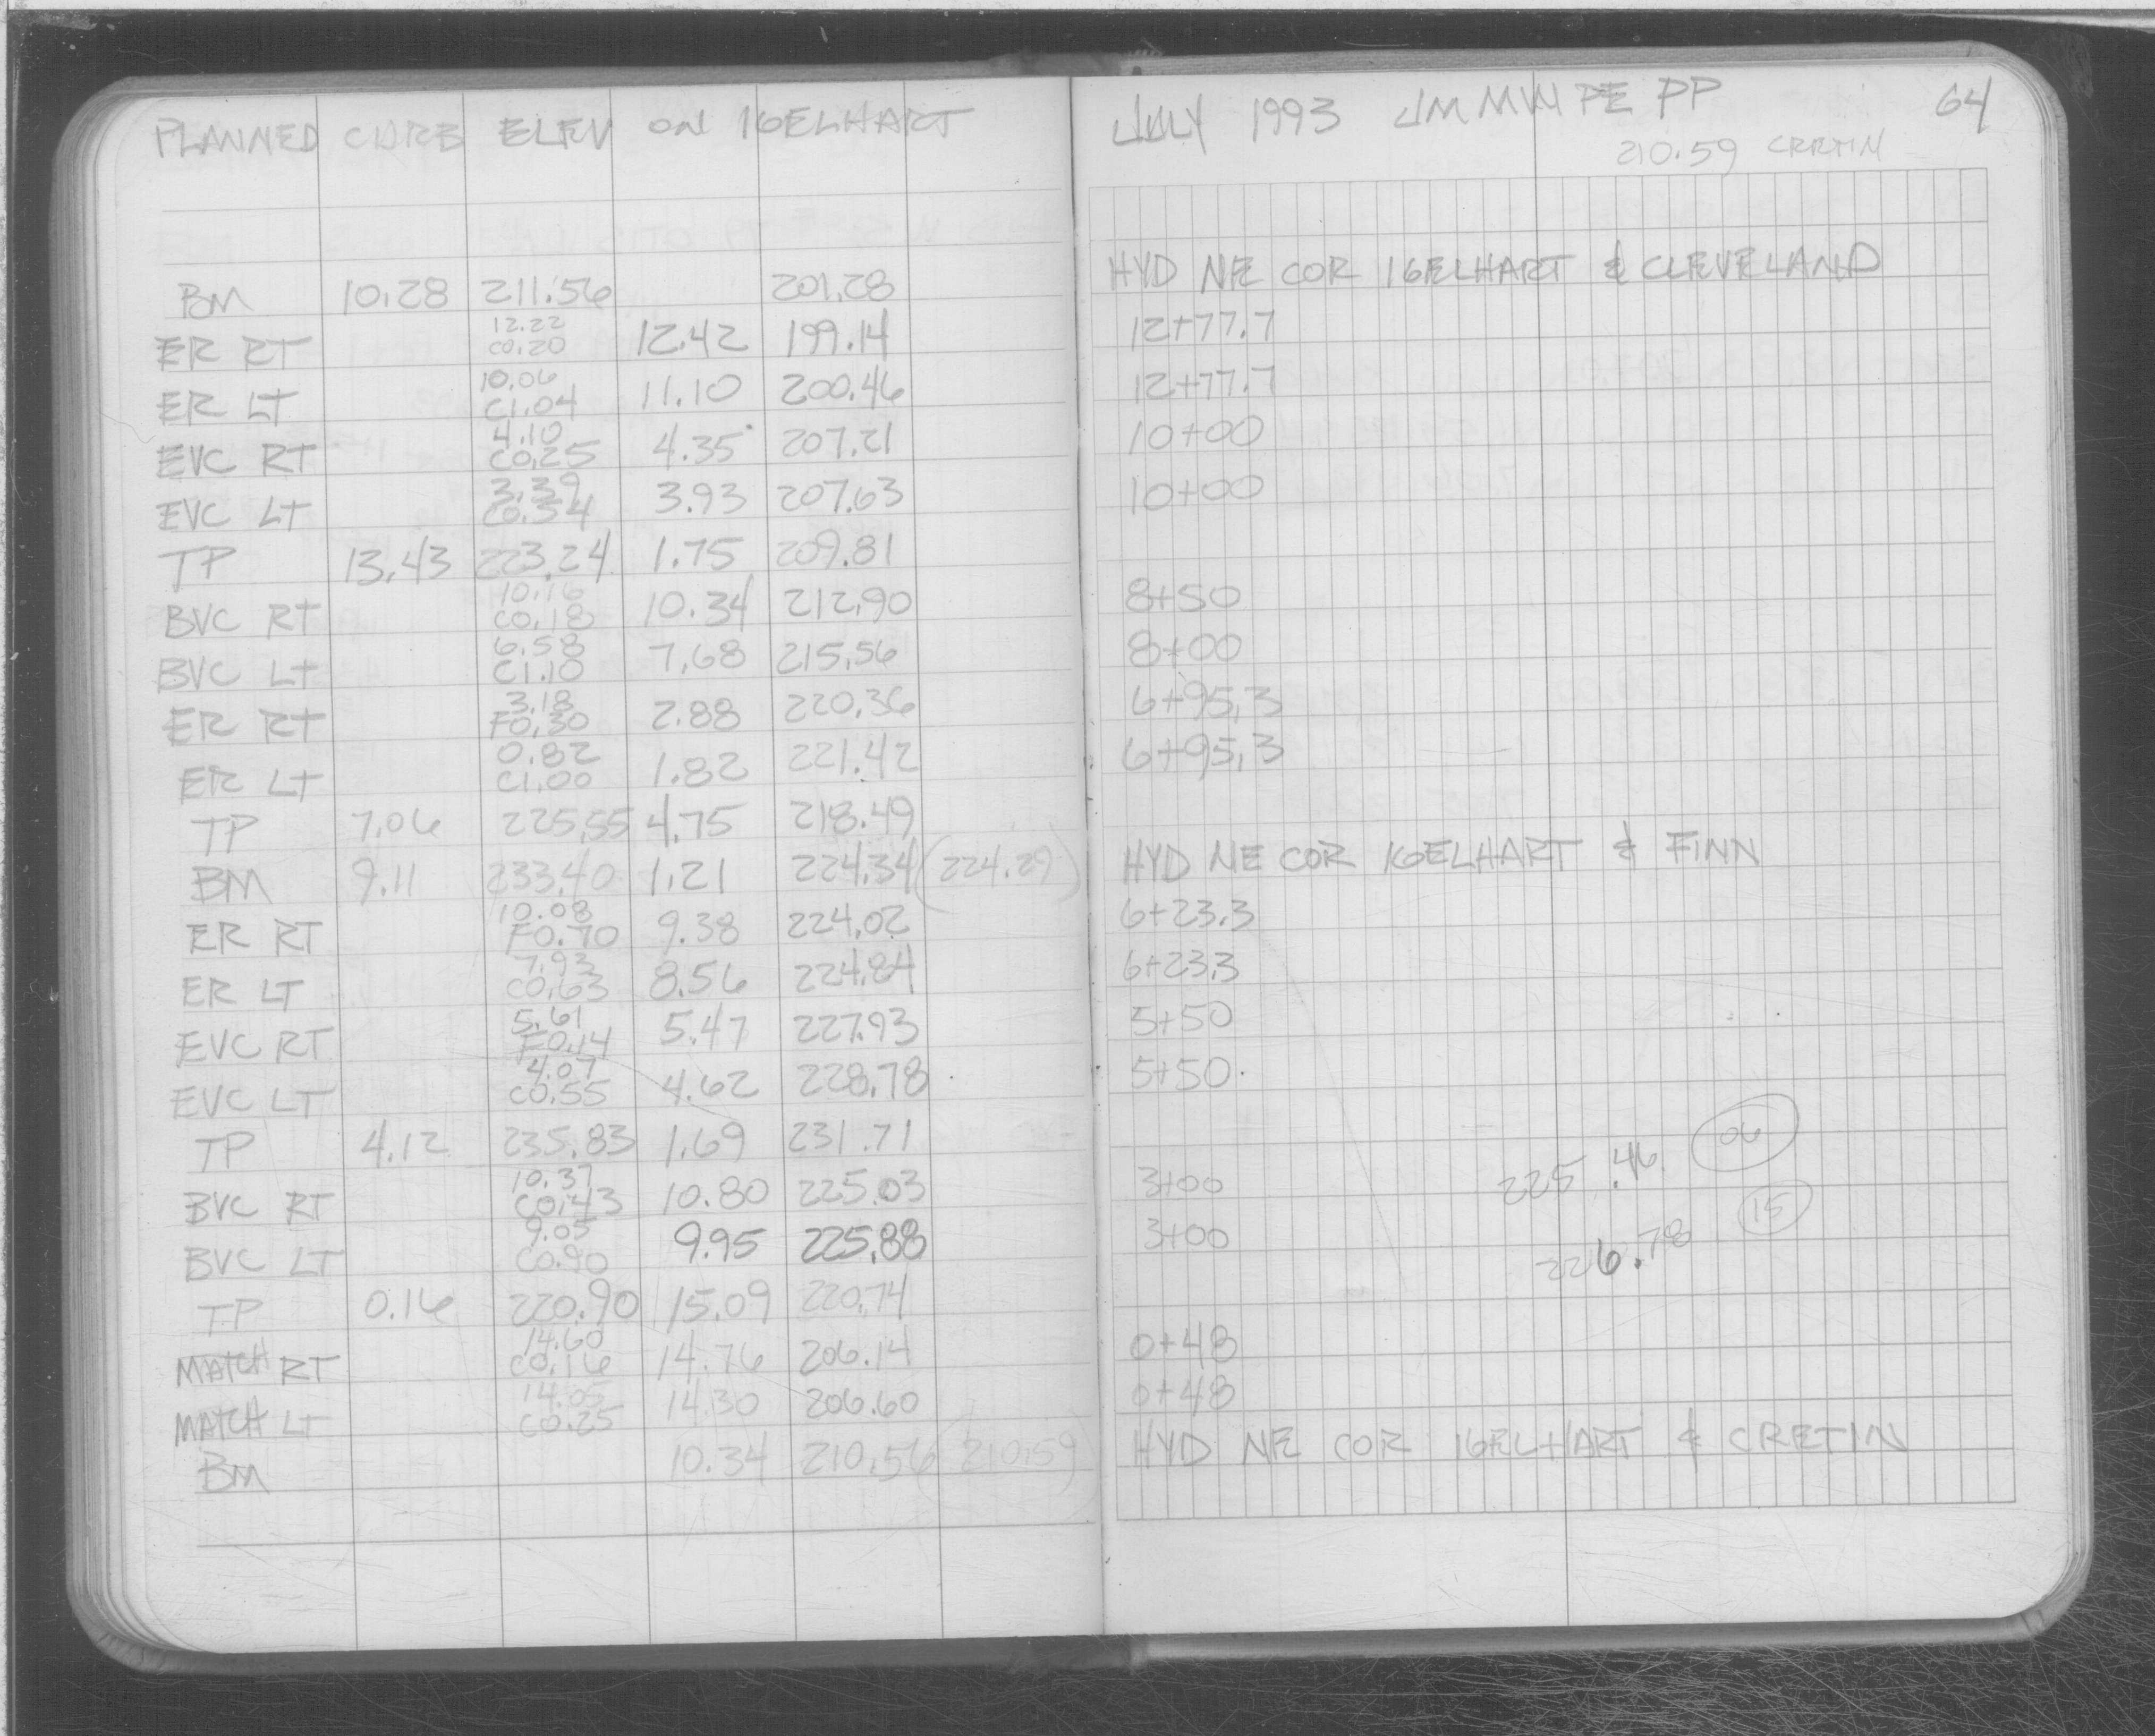 PLANNED CURB ELEV ON IGELHART
BM 10.28 211.56 201.28
12.22
ER RT C0.20 12.42 199.14
10.06
ER LT C1.04 11.10 200.46
4.10
EVC RT C0.25 4.35 207.21
3.39
EVC LT C0.54 3.93 207.63
TP 13.43 223.24 1.75 209.81
10.16
BVC RT C0.18 10.34 212.90
6.58
BVC LT C1.10 7.68 215.56
3.18
ER RT F0.30 2.88 220.36
0.82
ER LT C1.00 1.82 221.42
TP 7.06 225.55 4.75 218.49
BM 9.11 233.40 1.21 224.34 (224.29)
10.08
ER RT F0.70 9.38 224.02
7.93
ER LT C0.63 8.56 224.84
5.61
EVC RT F0.14 5.47 227.93
4.07
EVC LT C0.55 4.62 228.78
TP 4.12 235.83 1.69 231.71
10.37
BVC RT C0.43 10.80 225.03
9.05
BVC LT C0.90 9.95 225.88
TP 0.16 220.90 15.09 220.74
14.60
MATCH RT C0.16 14.76 206.14
14.05
MATCH LT C0.25 14.30 206.60
BM 10.34 210.56 (210.59)
JULY 1993 JM MW PE PP 64
210.59 CRETIN
HYD NE COR IGELHART & CLEVELAND
12+77.7
12+77.7
10+00
10+00
8+50
8+00
6+95.3
6+95.3
HYD NE COR IGELHART & FINN
6+23.3
6+23.3
5+50
5+50
3+00 225.46 06
3+00 226.78 15
0+48
0+48
HYD NE COR IGELHART & CRETIN